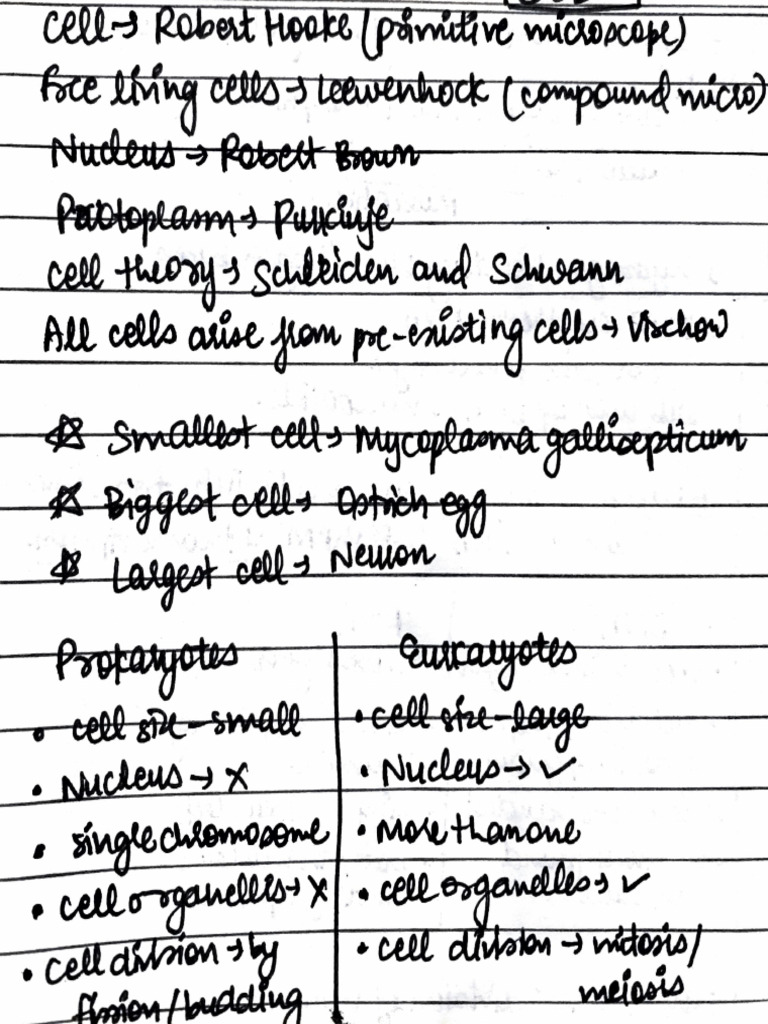 Cell → Robert Hooke (primitive microscope)
free living cells → Leewenhock (compound micro)
Nucleus → Robert Brown
Protoplasm → Purkinje
cell theory → Schleiden and Schwann
All cells arise from pre-existing cells → Virchow
☆ Smallest cell → Mycoplasma gallisepticum
☆ Biggest cell → Ostrich egg
☆ Largest cell → Neuron
Prokaryotes | Eukaryotes
• cell size - small | • cell size - large
• Nucleus → ✗ | • Nucleus → ✓
• single chromosome | • More than one
• cell organelles → ✗ | • cell organelles → ✓
• cell division → by | • cell division → mitosis/
fission/budding | meiosis